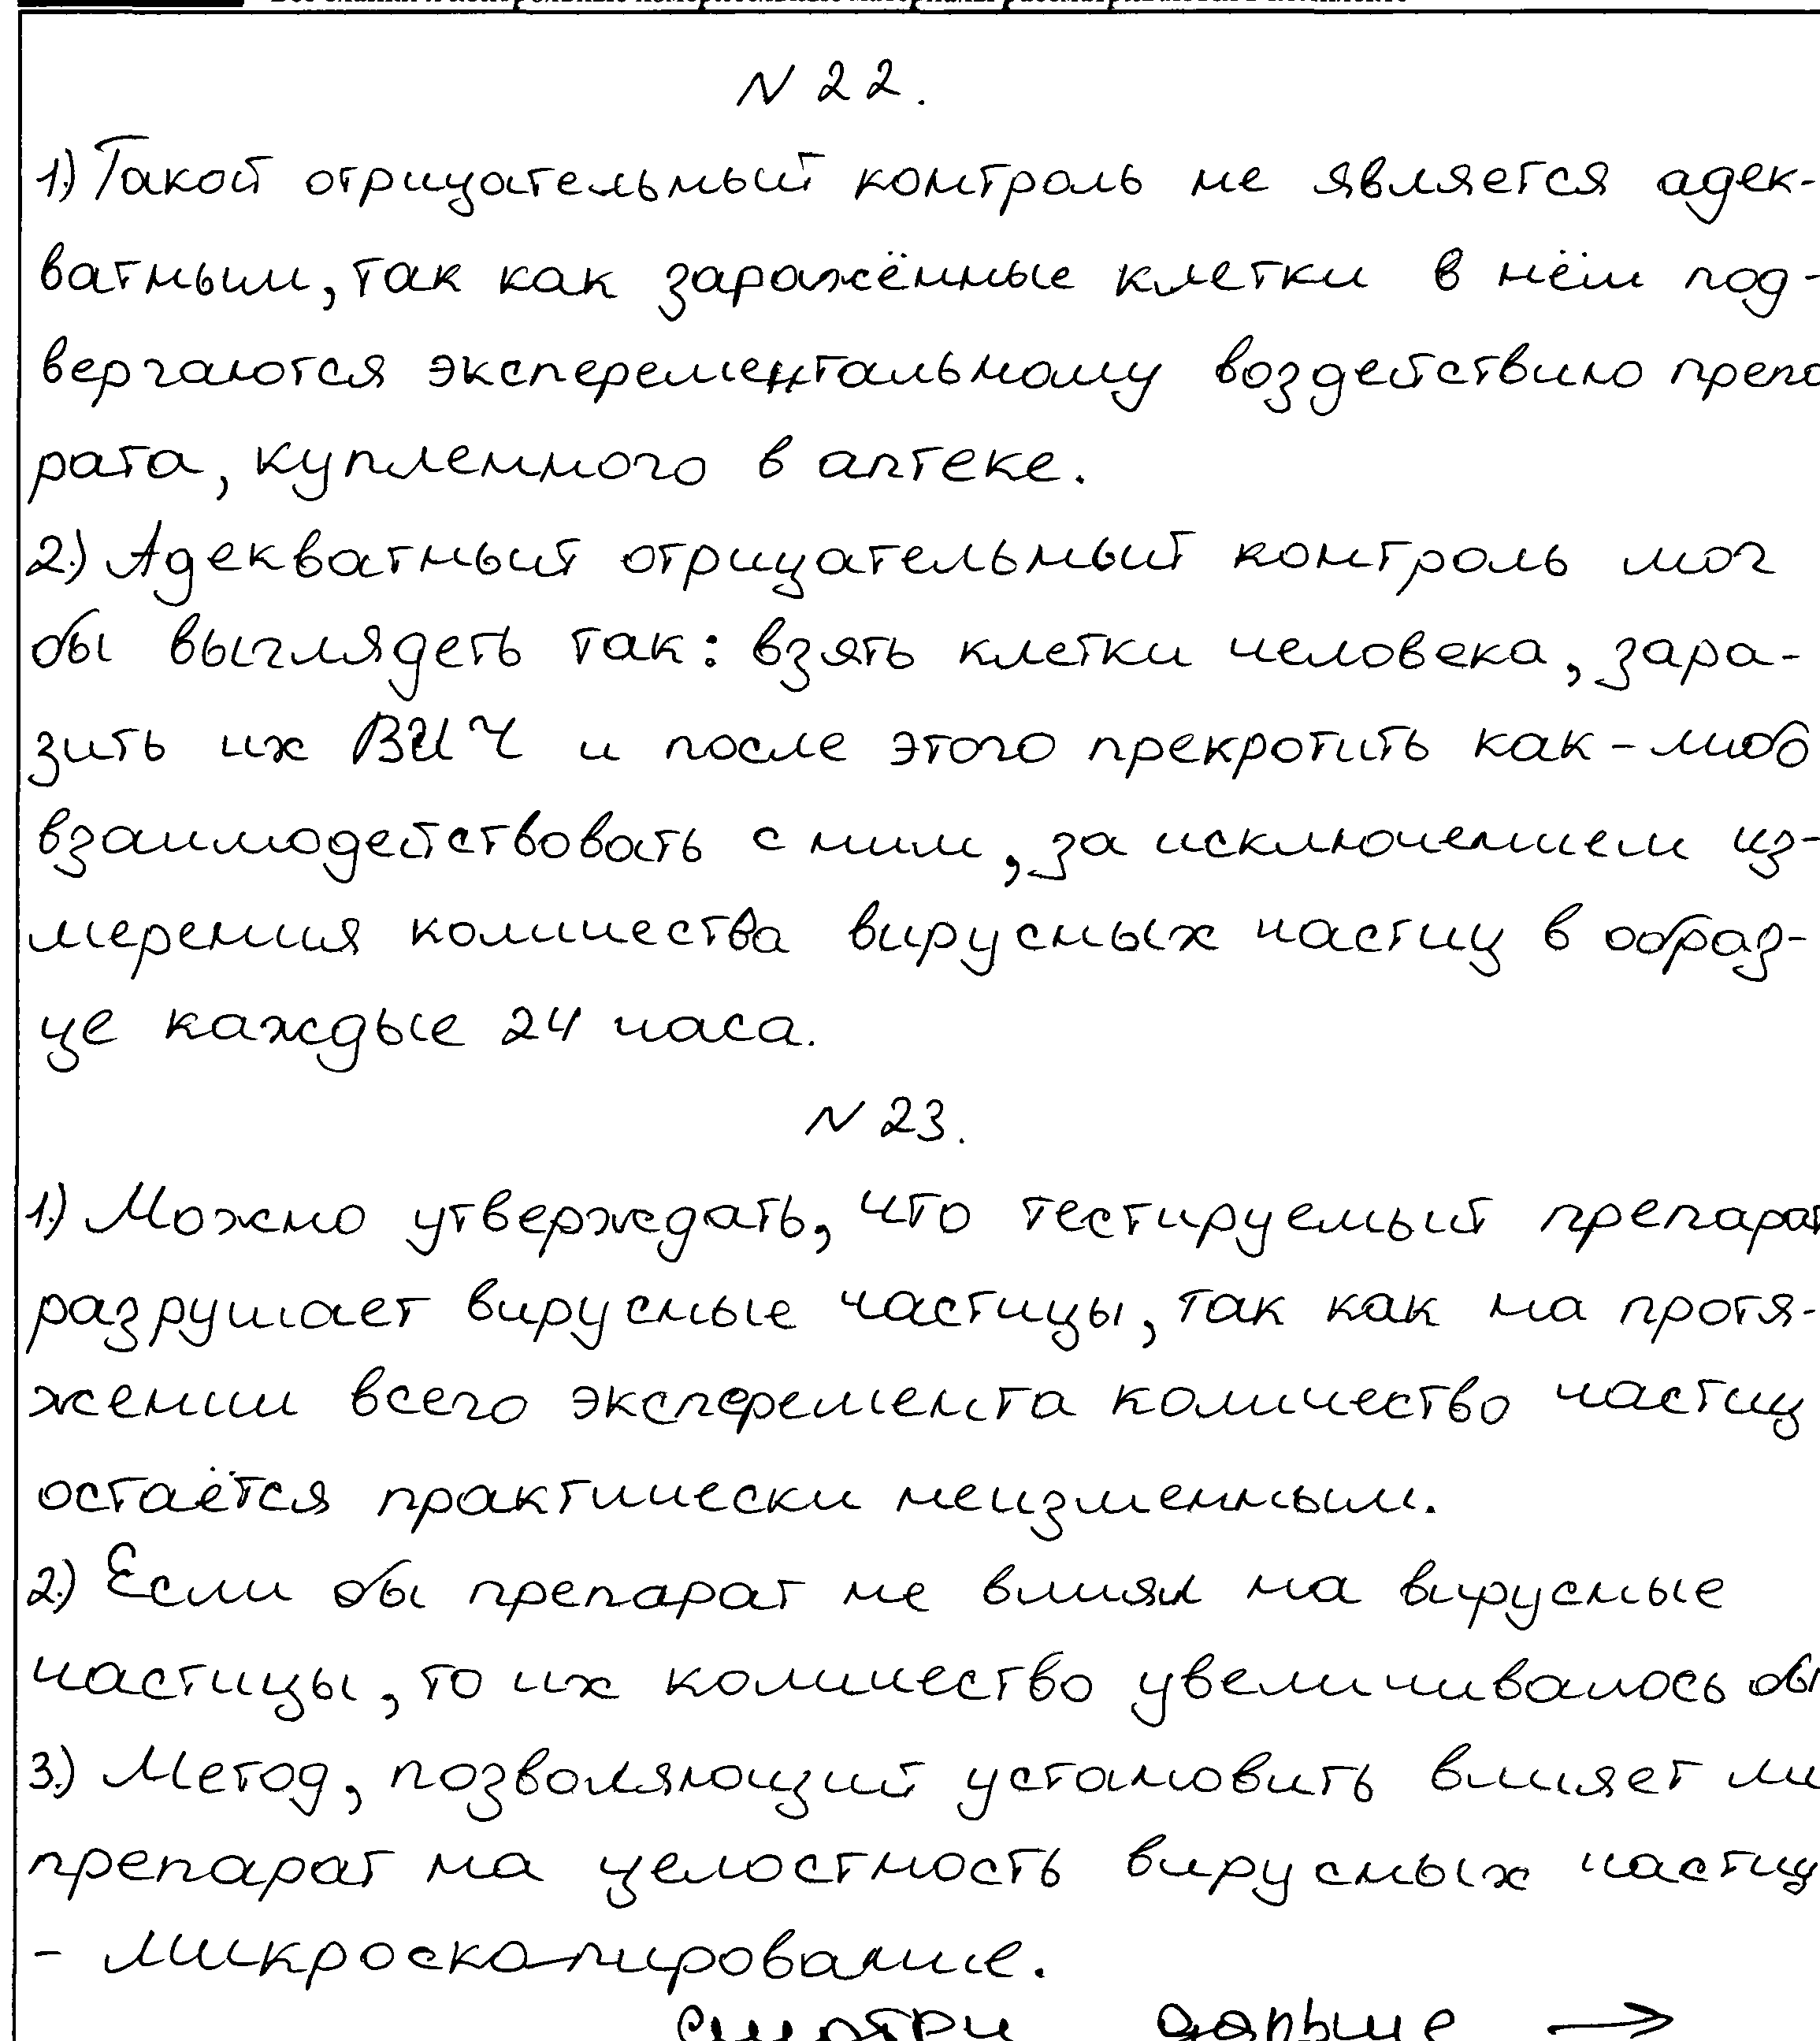 N 22.
1.) Такой отрицательный контроль не является адек-
ватным, так как заражённые клетки в нём под-
вергаются эксперементальному воздействию препа
рата, купленного в аптеке.
2.) Адекватный отрицательный контроль мог
бы выглядеть так: взять клетки человека, зара-
зить их ВИЧ и после этого прекротить как-либо
взаимодействовать с ним, за исключением из-
мерения количества вирусных частиц в образ-
це каждые 24 часа.
N 23.
1.) Можно утверждать, что тестируемый препарат
разрушает вирусные частицы, так как на протя-
жении всего эксперемента количество частиц
остаётся практически неизменным.
2.) Если бы препарат не влиял на вирусные
частицы, то их количество увеличивалось бы
3.) Метод, позволяющий установить влияет ли
препарат на целостность вирусных частиц
- микроскопирование.
смотри дальше →